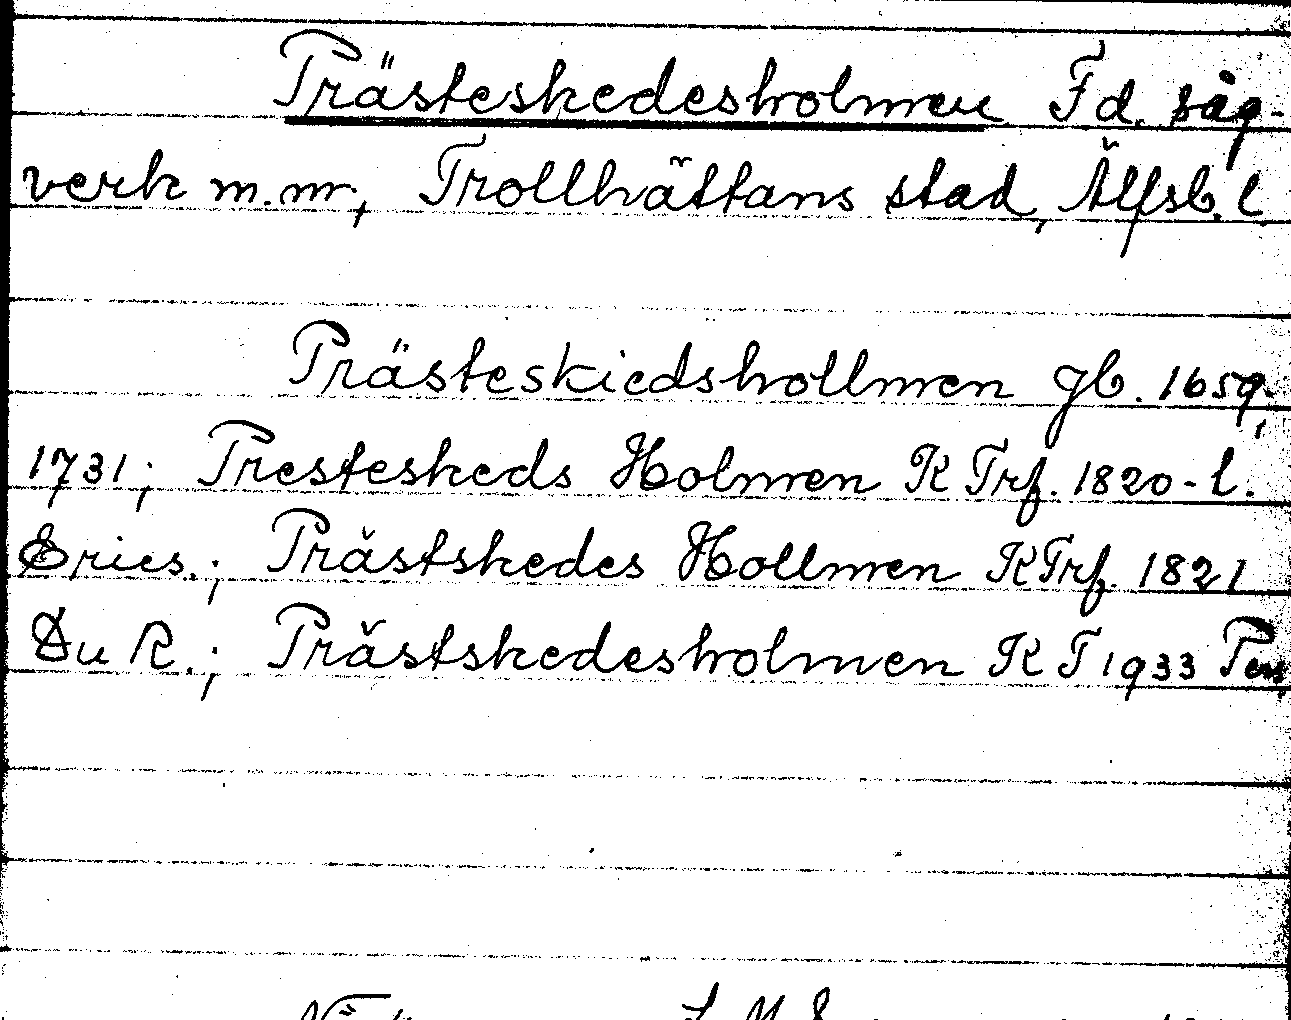 Prästeskedesholmen Fd. såg-
verk m.m., Trollhättans stad, Älfsb. l.
Prästeskiedshollmen gb. 1659,
1731; Presteskeds Holmen K Trf. 1820-l.
Erics.; Prästskedes Hollmen K Trf. 1821
Du R.; Prästskedesholmen K T 1933